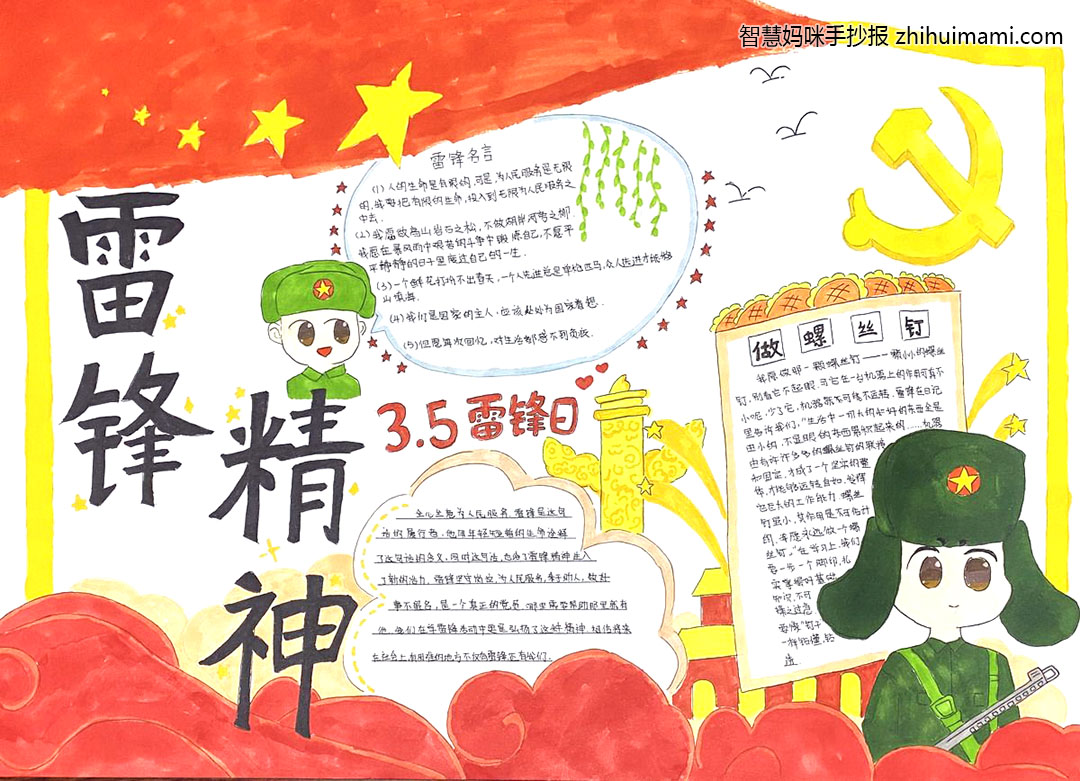 智慧妈咪手抄报 zhihuimami.com
雷锋
精神
雷锋名言
(1)人的生命是有限的,可是,为人民服务是无限
的,我要把有限的生命,投入到无限为人民服务之
中去.
(2)我愿做高山岩石之松,不做湖岸河旁之柳.
我愿在暴风雨中艰苦的斗争中锻炼自己,不愿平
平静静的日子里度过自己的一生.
(3)一个鲜花打扮不出春天,一个人先进总是单枪匹马,众人先进才能移
山填海.
(4)我们是国家的主人,应该处处为国家着想.
(5)但愿每次回忆,对生活都感不到负疚.
3.5雷锋日
全心全意为人民服务,雷锋是这句
话的履行者.他用年轻短暂的生命诠释
了这句话的含义,同时这句话,也为了雷锋精神注入
了新的活力.雷锋坚守岗位,为人民服务,乐于助人,做好
事不留名,是一个真正的党员.哪里需要帮助哪里就有
他.我们在学雷锋活动中更是弘扬了这种精神.相信将来
在社会上,有困难的地方不仅有雷锋还有我们.
做螺丝钉
我愿做那一颗螺丝钉——一颗小小的螺丝
钉,别看它不起眼,可它在一台机器上的作用可真不
小呢,少了它,机器就不可能不运转,雷锋在日记
里告诉我们,"生活中一切大的和好的东西全是
由小的、不显眼的东西累积起来的……机器
由有许许多多的螺丝钉的联接
和固定,才成了一个坚实的整
体,才能够运转自如,发挥
它巨大的工作能力.螺丝
钉虽小,其作用是不可估计
的,我愿永远做一个螺
丝钉."在学习上,我们
要一步一个脚印,扎
实掌握好基础
知识,不可
一样钻